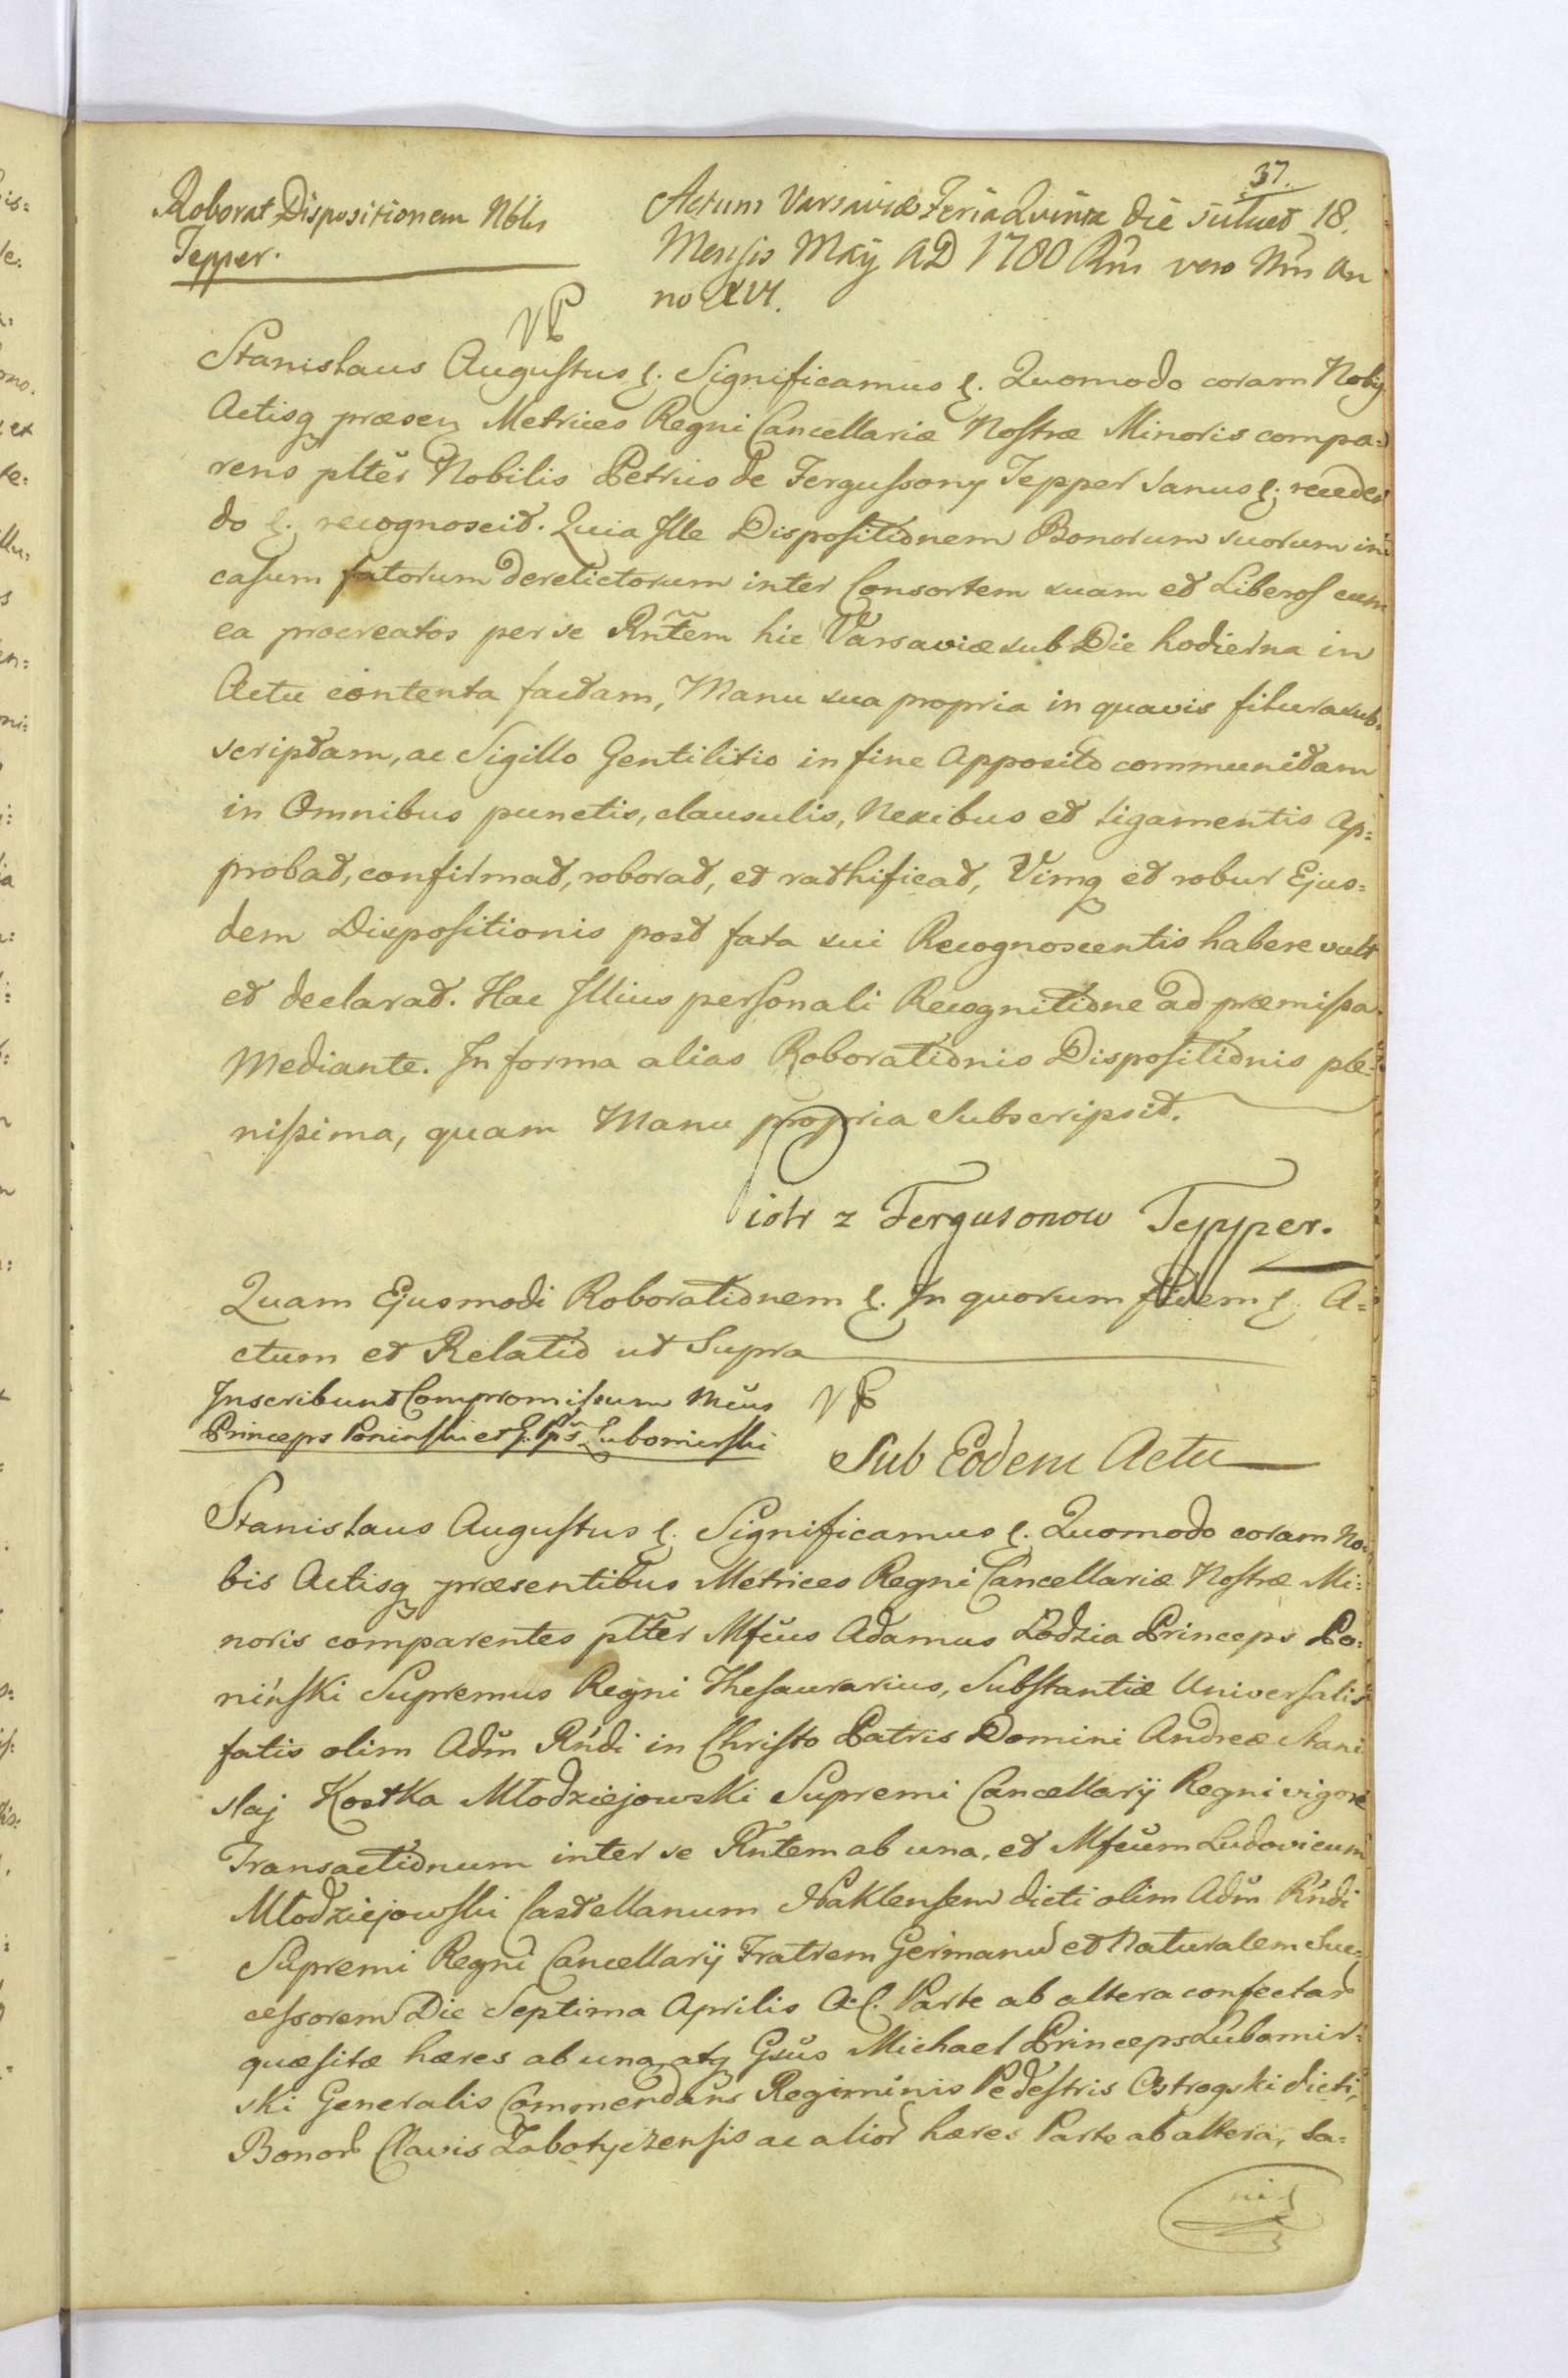 37.
Roborat Dispositionem Nblis
Tepper.
Actum Varsaviæ Feria Quinta die 18.
Mensis Maÿ AD 1780 Rni vero Nri An
no XVI.
Stanislaus Augustus &. Significamus &. Quomodo coram Nobis
Actisq præsen Metrices Regni Cancellariæ Nostræ Minoris compa=
rens plter Nobilis Petrus de Fergussony Tepper sanus &. receden
do &. recognoscit. Quia Ille Dispositionem Bonorum suorum in
casum fatorum derelictorum inter Consortem suam et Liberos cum
ea procreatos per se Rntem hic Varsaviæ sub Die hodierna in
Actu contenta factam, Manu sua propria in quavis filura sub=
scriptam, ac Sigillo Gentilitio in fine Apposito communitam
in Omnibus punctis, clausulis, Nexibus et Ligamentis Ap=
probat, confirmat, roborat, et rathificat, Vimq et robur Ejus=
dem Dispositionis post fata sui Recognoscentis habere vult
et declarat. Hac Illius personali Recognitione ad præmissa
Mediante. In forma alias Roborationis Dispositionis ple=
nissima, quam Manu propria Subscripsit.
Piotr z Fergusonow Tepper.
Quam Ejusmodi Roborationem &. In quorum fidem &. A=
ctum et Relatio ut Supra
Inscribunt Compromissum Mcus
Princeps Poninski et G. Pns Lubomirski
Sub Eodem Actu
Stanislaus Augustus &. Significamus &. Quomodo coram No=
bis Actisq præsentibus Metrices Regni Cancellariæ Nostræ Mi=
noris comparentes plter Mfcus Adamus Lodzia Princeps Po=
niński Supremus Regni Thesaurarius, Substantiæ Universalis
fatis olim Adm Rndi in Christo Patris Domini Andreæ Stani
slaj Kostka Młodziejowski Supremi Cancellarÿ Regni vigore
Transactionum inter se Rntem ab una, et Mfcum Ludovicum
Młodziejowski Castellanum Naklensem dicti olim Adm Rndi
Supremi Regni Cancellarÿ Fratrem Germanu et Naturalem Suc=
cessorem Die Septima Aprilis A. C. Parte ab altera confectar
quæsitæ hæres ab una, atq Gsus Michael Princeps Lubomir=
ski Generalis Commendans Regiminis Pedestris Ostrogski dicti,
Bonor Clavis Zabotyczensis ac alior hæres Parte ab altera, sa=
ni